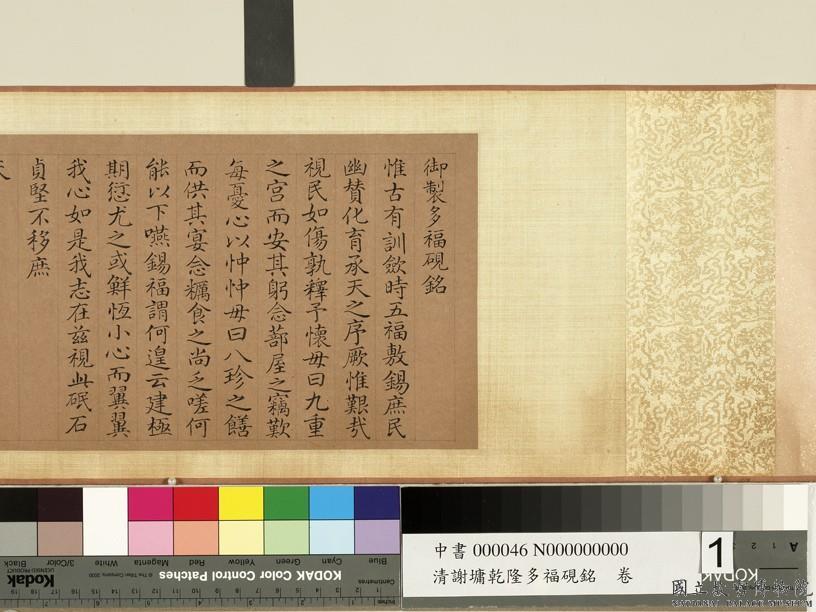 御製多福硯銘
惟古有訓斂時五福敷錫庶民
幽贊化育承天之序厥惟艱哉
視民如傷孰釋予懷毋曰九重
之宮而安其躬念蔀屋之竊歎
每憂心以忡忡毋曰八珍之饍
而供其宴念糲食之尚乏嗟何
能以下嚥錫福謂何遑云建極
期愆尤之或鮮恆小心而翼翼
我心如是我志在茲視此硯石
貞堅不移庶
天
Blue
Cyan
Green
Yellow
Red
Magenta
White
3/Color
Black
KODAK Color Control Patches
© The Tiffen Company, 2000
Kodak
LICENSED PRODUCT
Centimetres
Inches
1 2 3 4 5 6 7 8 9 10 11 12 13 14 15 16 17 18 19
中書 000046 N000000000
清謝墉乾隆多福硯銘 卷
1
A 1 2
KO
國立故宮博物院
NATIONAL PALACE MUSEUM